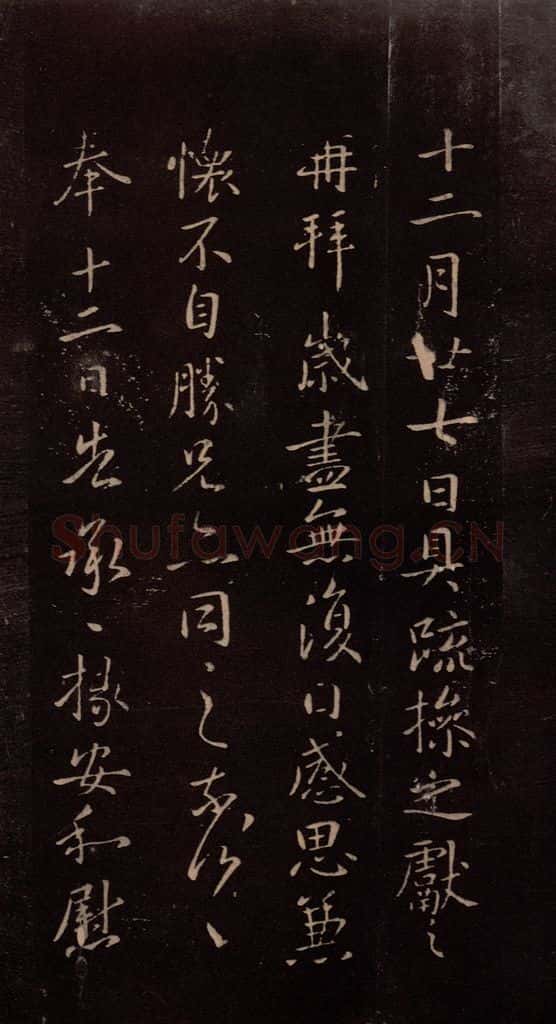 十二月廿七日具疏操之獻之
再拜歲盡無復日感思兼
懷不自勝兄亦同之奈何、
奉十二日告承、掾安和慰
Shufawang.CN